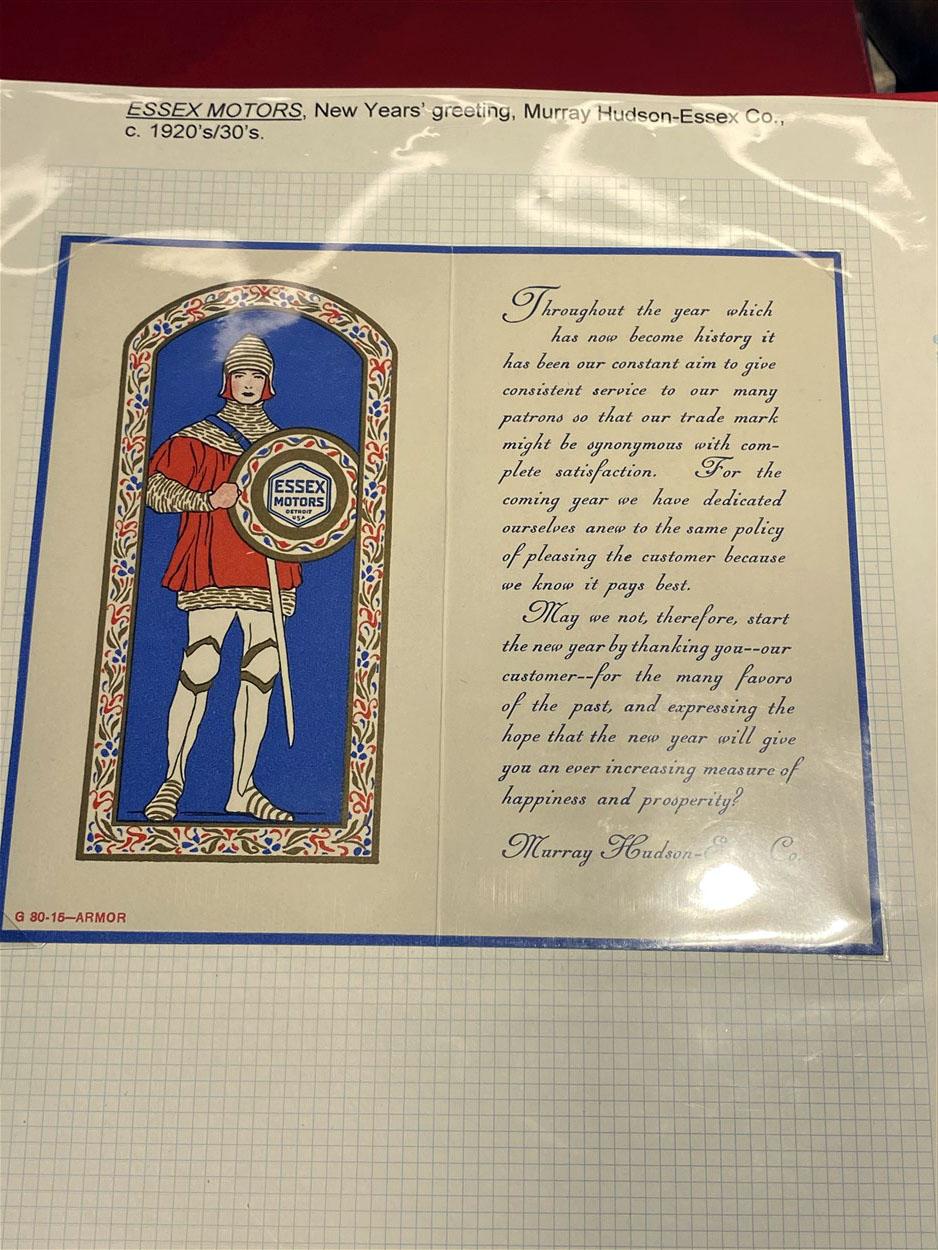 ESSEX MOTORS, New Years' greeting, Murray Hudson-Essex Co.,
c. 1920's/30's.
ESSEX
MOTORS
DETROIT
USA
G 80-15—ARMOR
Throughout the year which
has now become history it
has been our constant aim to give
consistent service to our many
patrons so that our trade mark
might be synonymous with com-
plete satisfaction. For the
coming year we have dedicated
ourselves anew to the same policy
of pleasing the customer because
we know it pays best.
May we not, therefore, start
the new year by thanking you--our
customer--for the many favors
of the past, and expressing the
hope that the new year will give
you an ever increasing measure of
happiness and prosperity?
Murray Hudson- Co.